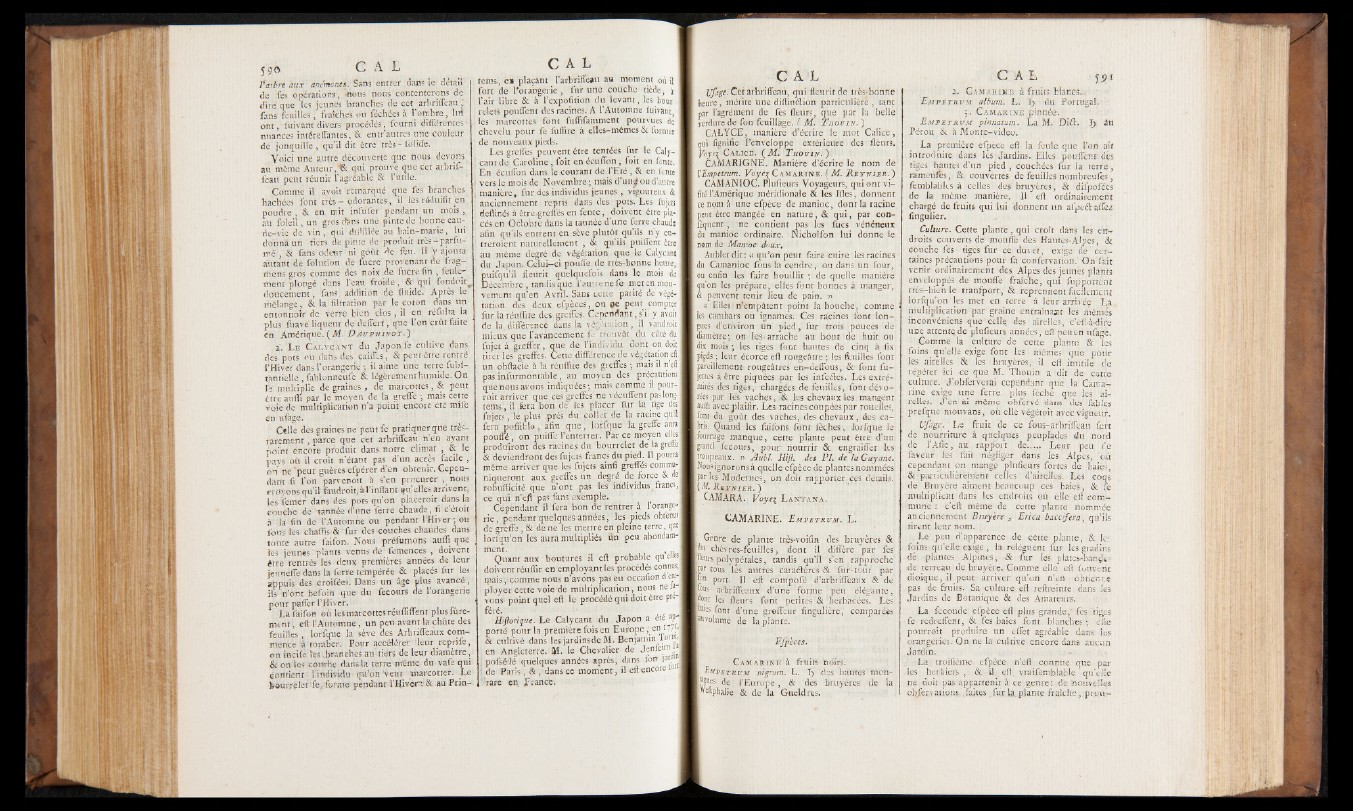 590 C A L
l'arbre aux anémones. Sans entrer dans le détail
de ses opérations, nous nous contenterons de
dire que les jeunes branches de cet arbrisseau,
sans feuilles, fraîches ou séchées à l'ombre, lui
ont, suivant divers procédés, fourni différentes
nuances intéressantes, & entr'autres une couleur
de jonquille, qu'il dit être très-solide.
Voici une autre découverte que nous devons
au même Auteur, & qui prouve que cet arbris-
seau peut réunir l'agréable & l'utile.
Comme il avoit remarqué que ses branches
hachées sont très-odorantes, il les réduisit en
poudre, & en mit infuser pendant un mois,
au soleil, un gros dans une pinte de bonne eau-
de-vie de vin, qui distillée au bain-marie, lui
donna un tiers de pinte de produit très-parfu-
mé, & sans odeur ni goût de feu. Il y ajouta
autant de solution de sucre provenant de frag-
mens gros comme des noix de sucre fin, seule-
ment plongé dans l'eau froide, & qui fondoit
doucement, sans addition de fluide. Après le
mélange, & la filtration par le coton dans un
entonnoir de verre bien clos, il en résulta la
plus suave liqueur de dessert, que l'on crut faite
en Amérique. (M. DAUPHINOT.)
2. LE CALYCANT du Japon se cultive dans
des pots ou dans des caisses, & peut être rentré
l'Hiver dans l'orangerie; il aime une terre subs-
tantielle, sablonneuse & légèrement humide. On
le multiplie de graines, de marcottes, & peut
être aussi par le moyen de la greffe; mais cette
voie de multiplication n'a point encore été mise
en usage.
Celle des graines ne peut se pratiquer que très-
rarement, parce que cet arbrisseau n'en ayant
point encore produit dans notre climat, & le
pays où il croît n'étant pas d'un accès facile,
on ne peut guères espérer d'en obtenir. Cepen-
dant si l'on parvenoit à s'en procurer, nous
croyons qu'il faudroit, à l'instant qu'elles arrivent,
les semer dans des pots qu'on placeroit dans la
couche de tannée d'une serre chaude, si c'étoit
à la fin de l'Automne ou pendant l'Hiver; ou
sous les chassis & sur des couches chaudes dans
toute autre saison. Nous présumons aussi que
les jeunes plants venus de semences, doivent
être rentrés les deux premières années de leur
jeunesse dans la serre tempérée & placés sur les
appuis des croisées. Dans un âge plus avancé,
ils n'ont besoin que du secours de l'orangerie
pour passer l'Hiver.
La saison où les marcottes réussissent plus sûre-
ment, est l'Automne, un peu avant la chûte des
feuilles, lorsque la sève des Arbrisseaux com-
mence à tomber. Pour accélérer leur reprise,
on incise les branches au tiers de leur diamètre,
& on les couche dans la terre même du vase qui
contient l'individu qu'on veut marcotter. Le
bourrelet se forme pendant l'Hiver & au Prin-
C A L
tems, en plaçant l'arbrisseau au moment où il
sort de l'orangerie, sur une couche tiède, à
l'air libre & à l'exposition du levant, les bour-
relets poussent des racines. A l'Automne suivant,
les marcottes sont suffisamment pourvues de
chevelu pour se suffire à elles-mêmes & former
de nouveaux pieds.
Les greffes peuvent être tentées sur le Caly-
cant de Caroline, soit en écusson, soit en fente.
En écusson dans le courant de l'Eté, & en fente
vers le mois de Novembre; mais d'une ou d'autre
manière, sur des individus jeunes, vigoureux &
anciennement repris dans des pots. Les sujets
destinés à être greffés en fente, doivent être pla-
cés en Octobre dans la tannée d'une serre chaude
afin qu'ils entrent en sève plutôt qu'ils n'y en-
treroient naturellement, & qu'ils puissent être
au même degré de végétation que le Calycant
du Japon. Celui-ci pousse de très-bonne heure,
puisqu'il fleurit quelquefois dans le mois de
Décembre, tandis que l'autre ne se met en mou-
vement qu'en Avril. Sans cette parité de végé-
tation des deux espèces, on ne peut compter
sur la réussite des greffes. Cependant, s'il y avoit
de la différence dans la végétation, il vaudroit
mieux que l'avancement se trouvât du côté du
sujet à greffer, que de l'individu dont on doit
tirer les greffes. Cette différence de végétation est
un obstacle à la réussite des greffes; mais il n'est
pas insurmontable, au moyen des précautions
que nous avons indiquées; mais comme il pour-
roit arriver que ces greffes ne vécussent pas long-
tems, il sera bon de les placer sur la tige des
sujets, le plus près du collet de la racine qu'il
sera possible, afin que, lorsque la greffe aura
poussé, on puisse l'enterrer. Par ce moyen elles
produiront des racines du bourrelet de la greffe
& deviendront des sujets francs du pied. Il pourra
même arriver que les sujets ainsi greffés commu-
niqueront aux greffes un degré de force & de
robusticité que n'ont pas les individus francs,
ce qui n'est pas sans exemple.
Cependant il sera bon de rentrer à l'orange-
rie, pendant quelques années, les pieds obtenus
de greffe, & de ne les mettre en pleine terre, que
lorsqu'on les aura multipliés un peu abondam-
ment.
Quant aux boutures il est probable qu'elles
doivent réussir en employant les procédés connus,
mais, comme nous n'avons pas eu occasion d'em-
ployer cette voie de multiplication, nous ne sa-
vons point quel est le procédé qui doit être pré-
féré.
Historique. Le Calycant du Japon a été ap-
porté pour la première fois en Europe, en 1771,
& cultivé dans les jardins de M. Benjamin Torin,
en Angleterre. M. le Chevalier de Jensein l'a
possédé quelques années après, dans son jardin
de Paris, &, dans ce moment, il est encore fort
rare en France.
C A L
Usage. Cet arbrisseau, qui fleurit de très-bonne
heure, mérite une distinction particulière, tant
par l'agrément de ses fleurs, que par la belle
verdure de son feuillage. (M. THOUIN.)
CALYCE, manière d'écrire le mot Calice,
qui signifie l'enveloppe extérieure des fleurs.
Voyez CALICE. (M. THOUIN.)
CAMARIGNE. Manière d'écrire le nom de
l'Empetrum. Voyez CAMARINE. (M. REYNIER.)
CAMANIOC. Plusieurs Voyageurs, qui ont vi-
sité l'Amérique méridionale & les Isles, donnent
ce nom à une espèce de manioc, dont la racine
peut être mangée en nature, & qui, par con-
séquent, ne contient pas les sucs vénéneux
du manioc ordinaire. Nicholson lui donne le
nom de Manioc doux.
Aublet dit: « qu'on peut faire cuire les racines
du Camanioc sous la cendre, ou dans un four,
ou enfin les faire bouillir; de quelle manière
qu'on les prépare, elles sont bonnes à manger,
& peuvent tenir lieu de pain. »
« Elles n'empâtent point la bouche, comme
les cambars ou ignames. Ces racines sont lon-
gues d'environ un pied, sur trois pouces de
diamètre; on les arrache au bout de huit ou
dix mois; les tiges sont hautes de cinq à six
pieds; leur écorce est rougeâtre; les feuilles sont
pareillement rougeâtres en-dessous, & sont su-
jettes à être piquées par les insectes. Les extré-
mités des tiges, chargées de feuilles, sont dévo-
rées par les vaches, & les chevaux les mangent
aussi avec plaisir. Les racines coupées par rouelles,
sont du goût des vaches, des chevaux, des ca-
bris. Quand les saisons sont sèches, lorsque le
fourrage manque, cette plante peut être d'un
grand secours, pour nourrir & engraisser les
troupeaux. » Aubl. Hist. des Pl. de la Guyane.
Nous ignorons à quelle espèce de plantes nommées
par les Modernes, on doit rapporter ces détails.
(M. REYNIER.)
CAMARA. Voyez LANTANA.
CAMARINE. EMPETRUM. L.
Genre de plante très-voisin des bruyères &
des chèvres-feuilles, dont il diffère par ses
fleurs polypétales, tandis qu'il s'en rapproche
par tous les autres caractères & sur-tout par
son port. Il est composé d'arbrisseaux & de
sous arbrisseaux d'une forme peu élégante,
dont les fleurs sont petites & herbacées. Les
baies sont d'une grosseur singulière, comparées
au volume de la plante.
Espèces.
CAMARINE à fruits noirs.
EMPETRUM nigrum. L. ♄ des hautes mon-
tagnes de l'Europe, & des bruyères de la
Westphalie & de la Gueldres.
C A L 591
2. CAMARINE à fruits blancs.
EMPETRUM album. L. ♄ du Portugal.
3. CAMARINE pinnée.
EMPETRUM pinnatum. La M. Dict. ♄ du
Pérou & à Monte-video.
La première espèce est la seule que l'on ait
introduite dans les Jardins. Elles poussent des
tiges hautes d'un pied, couchées sur la terre,
rameuses, & couvertes de feuilles nombreuses,
semblables à celles des bruyères, & disposées
de la même manière. Il est ordinairement
chargé de fruits qui lui donnent un aspect assez
singulier.
Culture. Cette plante, qui croît dans les en-
droits couverts de mousse des Hautes-Alpes, &
couche ses tiges sur ce duvet, exige de cer-
taines précautions pour sa conservation. On fait
venir ordinairement des Alpes des jeunes plants
enveloppés de mousse fraîche, qui supportent
très-bien le transport, & reprennent facilement
lorsqu'on les met en terre à leur arrivée. La
multiplication par graine entraînant les mêmes
inconvéniens que celle des airelles, c'est-à-dire
une attente de plusieurs années, est peu en usage.
Comme la culture de cette plante & les
soins qu'elle exige sont les mêmes que pour
les airelles & les bruyères, il est inutile de
répéter ici ce que M. Thouin a dit de cette
culture. J'observerai cependant que la Cama-
rine exige une terre plus sèche que les ai-
relles. J'en ai même observé dans des sables
presque mouvans, où elle végétoit avec vigueur.
Usage. Le fruit de ce sous-arbrisseau sert
de nourriture à quelques peuplades du nord
de l'Asie, au rapport de..... Leur peu de
saveur les fait négliger dans les Alpes, où
cependant on mange plusieurs sortes de baies,
& particulièrement celles d'airelles. Les coqs
de Bruyère aiment beaucoup ces baies, & se
multiplient dans les endroits où elle est com-
mune: c'est même de cette plante nommée
anciennement Bruyère, Erica baccifera, qu'ils
tirent leur nom.
Le peu d'apparence de cette plante, & les
soins qu'elle exige, la relèguent sur les gradins
de plantes Alpines, & sur les plates-bandes
de terreau de bruyère. Comme elle est souvent
dioïque, il peut arriver qu'on n'en obtienne
pas de fruits. Sa culture est restreinte dans les
Jardins de Botanique & des Amateurs.
La seconde espèce est plus grande, ses tiges
se redressent, & ses baies sont blanches; elle
pourroit produire un effet agréable dans les
orangeries. On ne la cultive encore dans aucun
Jardin.
La troisième espèce n'est connue que par
les herbiers, & il est vraisemblable qu'elle
ne doit pas appartenir à ce genre: de nouvelles
observations faites sur la plante fraîche, prou-